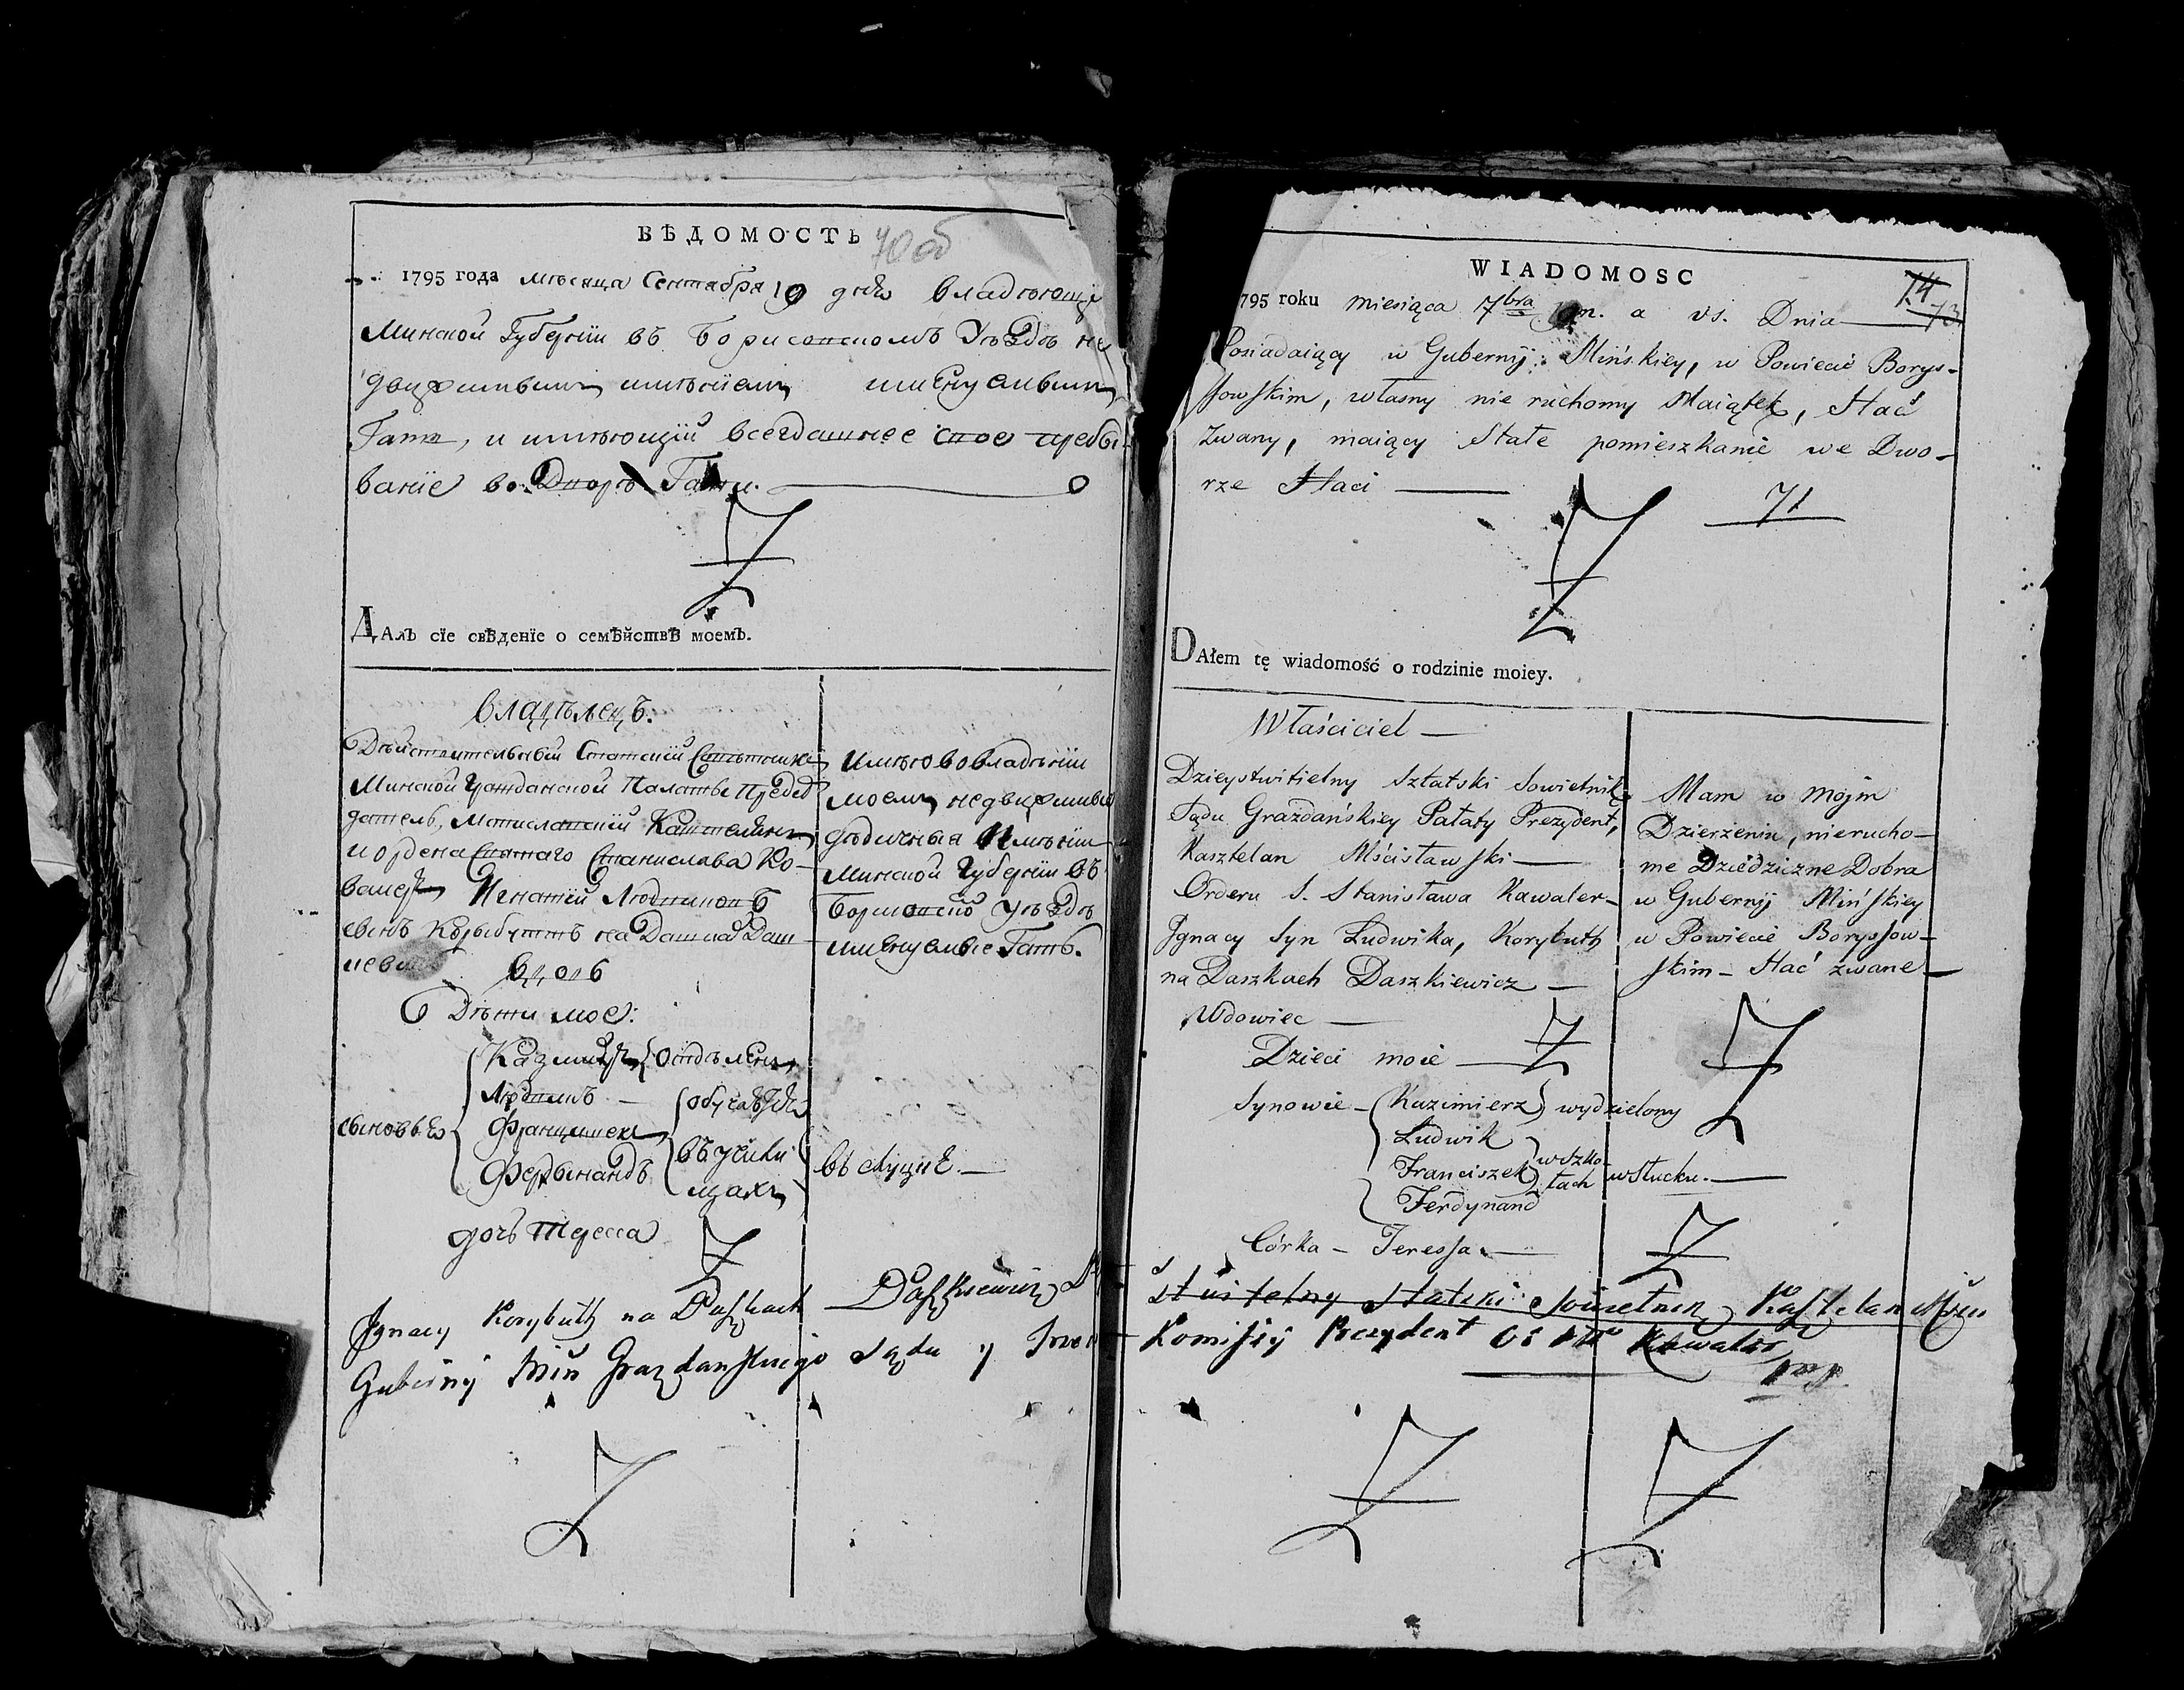 ВѢДОМОСТЬ
70 об
1795 года мѣсяца Сентября 19 дня владѣющій
Минской Губерніи въ Борисовскомъ Уѣздѣ не
движимымъ имѣніемъ имянуемымъ
Гать, и имѣющій всегдашнее свое пребы-
ваніе во Дворѣ Гати.
Далъ сїе свѣденїе о семѣйствѣ моемъ.
владѣлецъ.
Дѣйствительный Статскій Совѣтникъ
Минской Гражданской Палаты Предсѣ
датель, Мстиславскій Каштелянъ
и ордена Святаго Станислава Ко-
валеръ Игнатій Людвиковъ
сынъ Корыбутъ на Дашках Даш
кевичъ вдовъ
Дѣти мое:
Казимиръ отдѣленъ
Людвикъ —
сыновье Францишекъ
Фердынандъ
обучаются
въ училищахъ
въ слуцке. —
дочь Тересса
имѣю во владѣніи
моемъ недвижимые
дѣдичныя Имѣніи
Минской Губерніи въ
Борисовско Уѣздѣ
имянуемые Гать.
Jgnacy Korybuth na Daszkach Daszkiewicz
Gubernij Miń Grazdanskiego Sądu y
WIADOMOSC
74
73
795 roku miesiąca 7bra n. a vs. Dnia —
Posiadaiący w Gubernij Mińskiey, w Powiecie Borys-
sowskim, własny nie ruchomy Maiątek, Hać
Zwany, maiący Stałe pomieszkanie we Dwo-
rze Haci —
71
DAłem tę wiadomość o rodzinie moiey.
Właściciel —
Dzieystwitielny Sztatski Sowietnik,
Sądu Grażdańskiey Pałaty Prezydent,
Kasztelan Mścisławski —
Orderu S. Stanisława Kawaler —
Jgnacy Syn Ludwika, Korybuth
na Daszkach Daszkiewicz —
Wdowiec —
Dzieci moie —
Synowie — Kazimierz wydzielony
Ludwik
Franciszek w Szko-
łach w Słucku. —
Ferdynand
Córka — Teressa. —
Mam w mojm
Dzierżeniu, nierucho-
me Dziedziczne Dobra
w Gubernij Mińskiey
w Powiecie Boryssow-
skim — Hać zwane —
Statski Sowietnik Kasztelan
Komissij Prezydent Kawaler